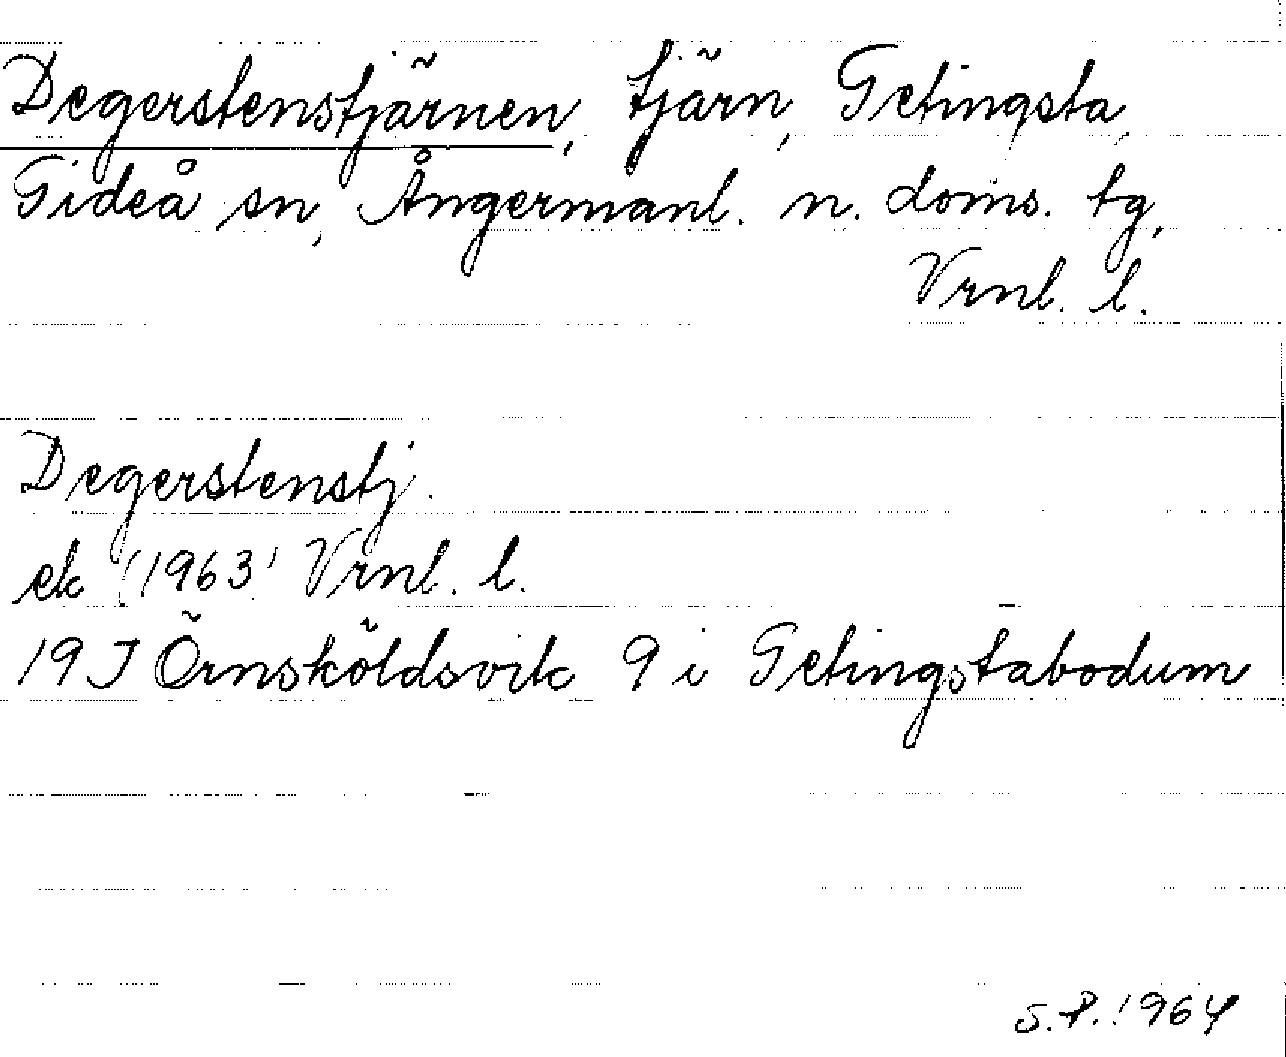 Degerstenstjärnen, tjärn, Getingsta,
Gideå sn, Ångermanl. n. doms. tg,
Vrnl. l.
Degerstenstj.
ek (1963) Vrnl. l.
19 J Örnsköldsvik 9 i Getingstabodum
S.P. 1964